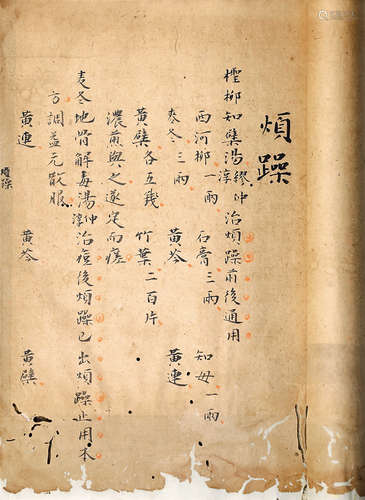 煩躁
檉柳知檗湯繆仲淳治煩躁前後通用
西河柳一兩 石膏三兩 知母一兩
麥冬三兩 黃芩 黃連
黃檗各五錢 竹葉二百片
濃煎與之遂定而瘥
麦冬地骨解毒湯仲淳治後煩躁已出煩躁止用本
方調益元散服
黃連 黃芩 黃檗
煩躁